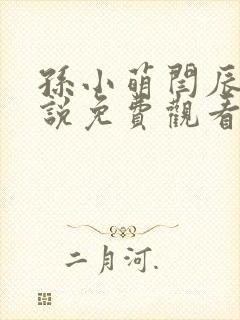 孫小萌閆辰
說免費觀看
二月河.